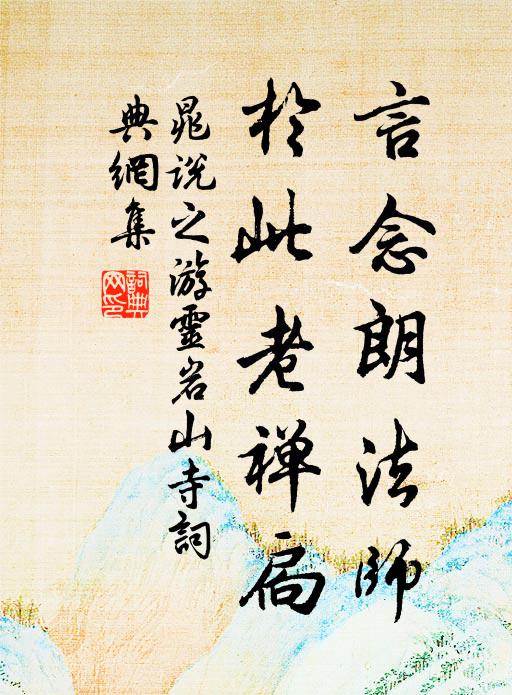 言念朗法师
於此老禅扃
晁说之游靈岩山寺詞
典網集
詞典网印